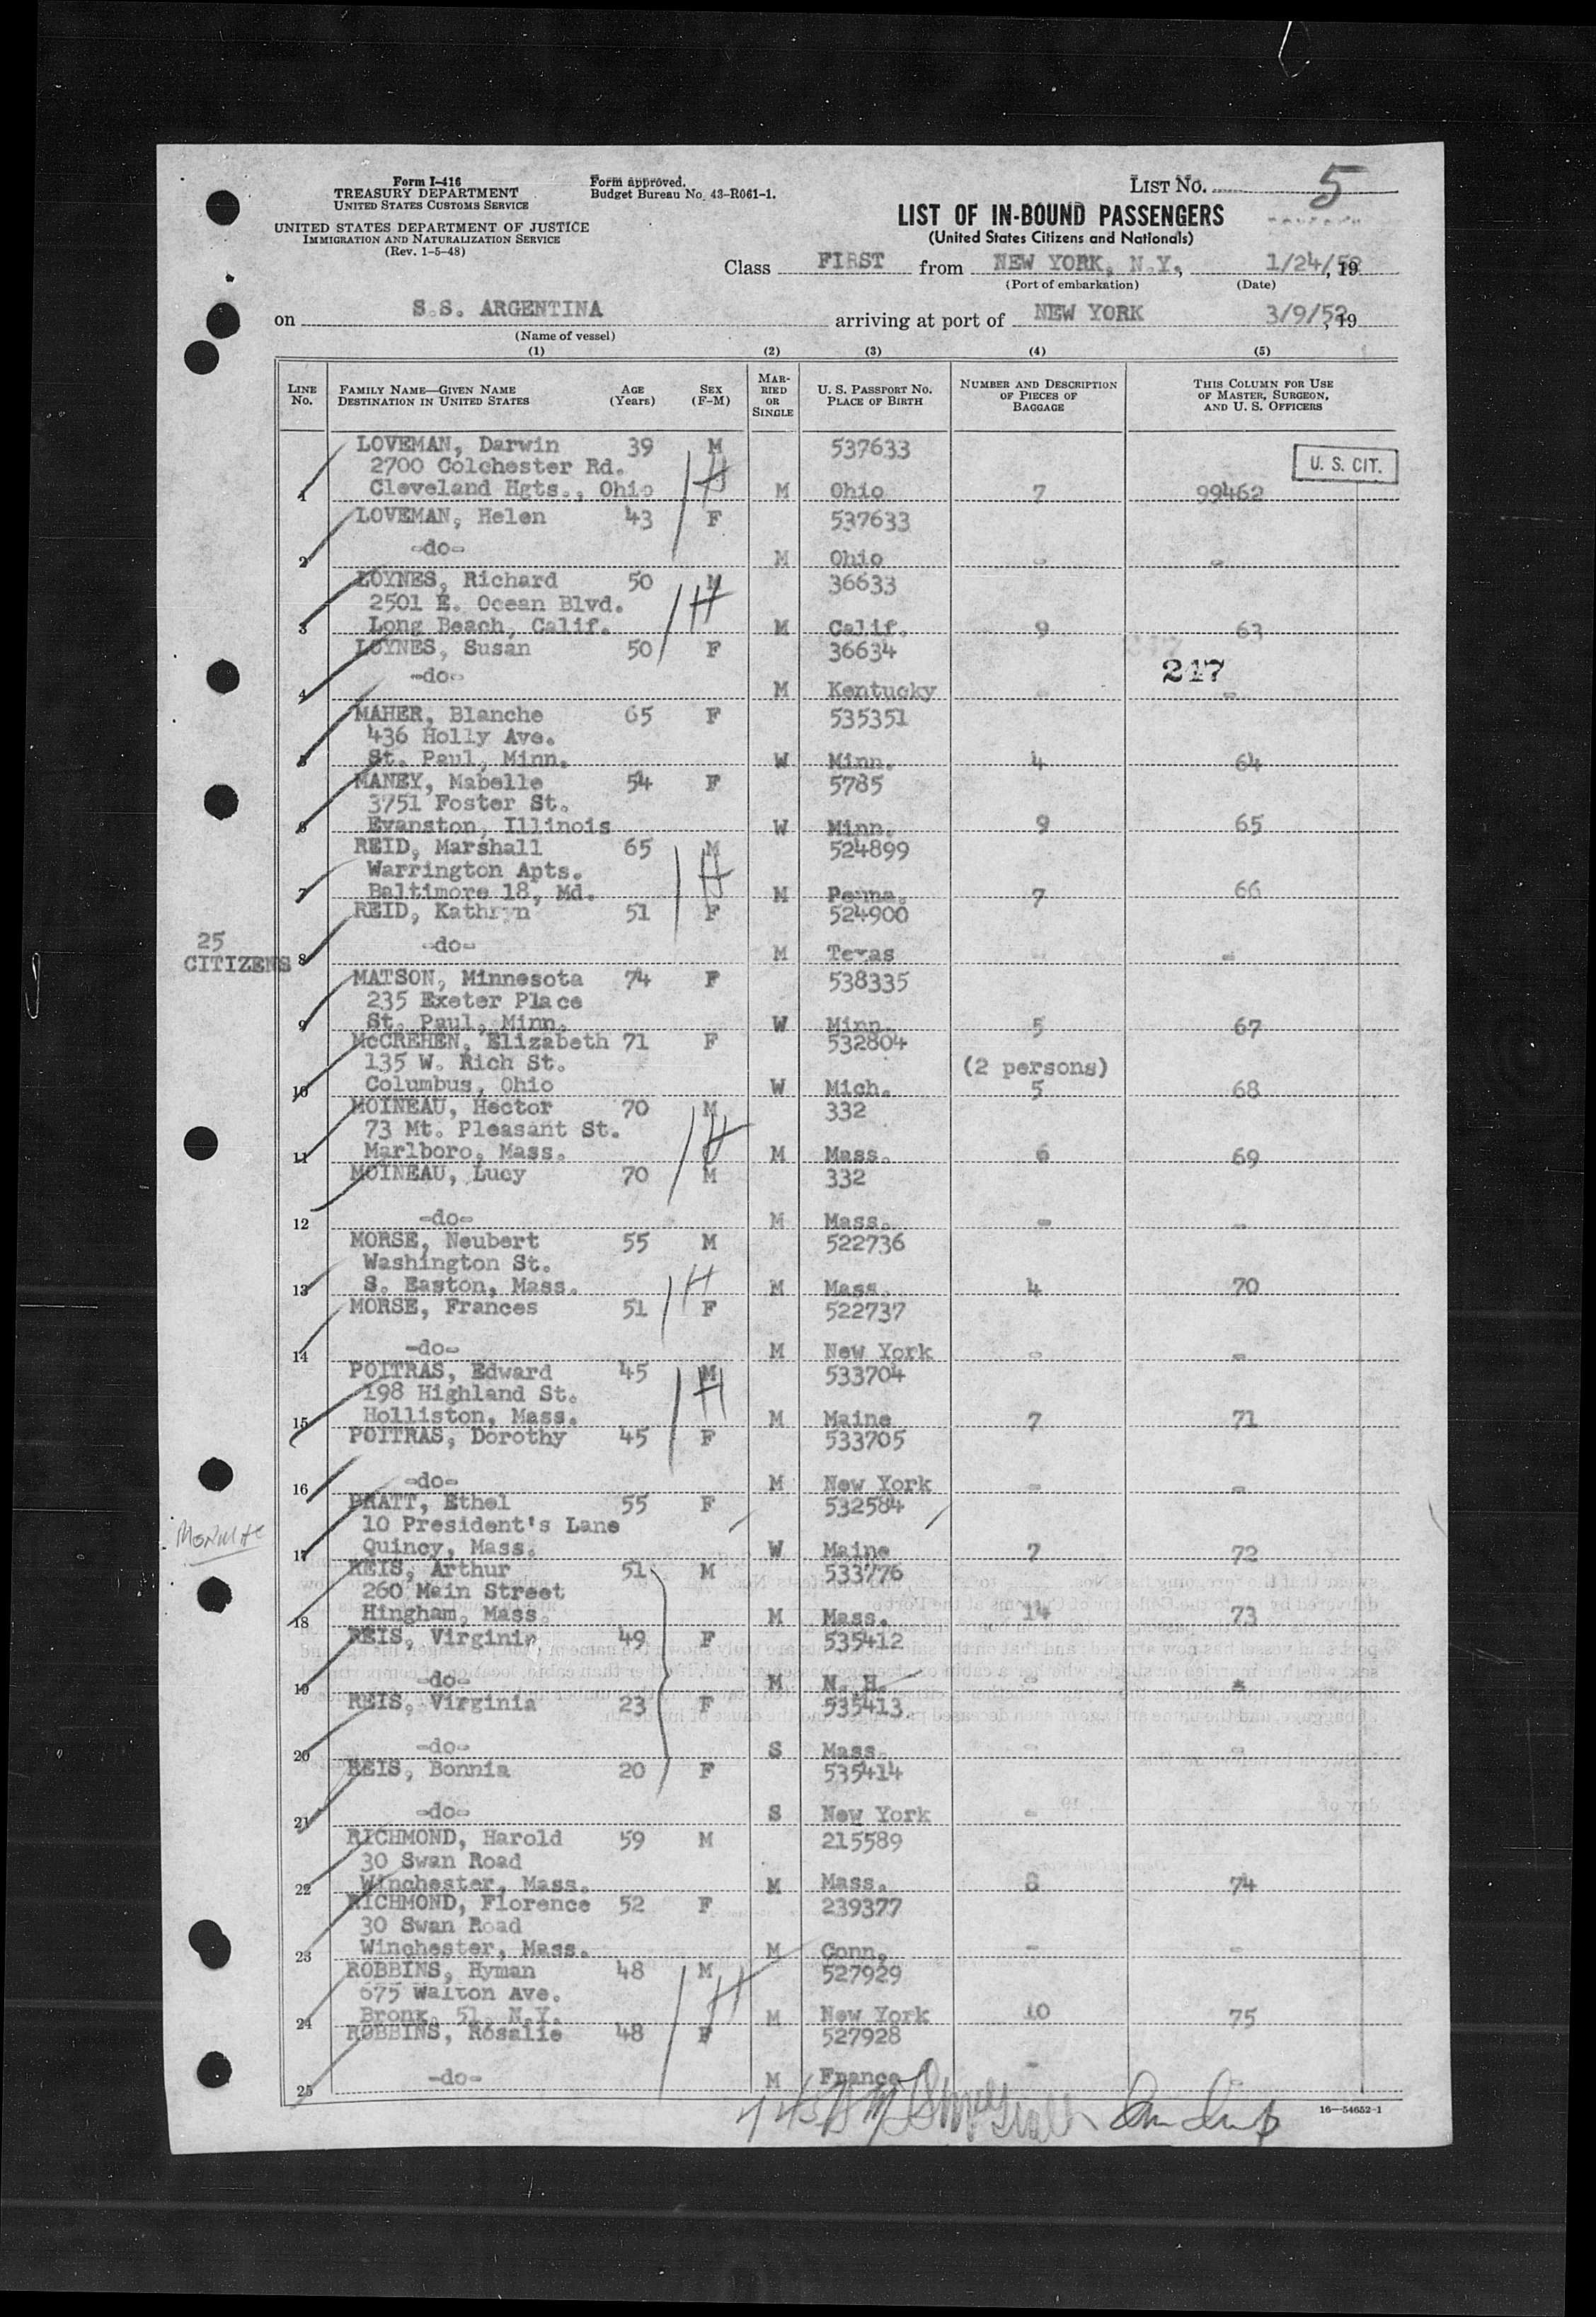 Form I-416
TREASURY DEPARTMENT
UNITED STATES CUSTOMS SERVICE
UNITED STATES DEPARTMENT OF JUSTICE
IMMIGRATION AND NATURALIZATION SERVICE
(Rev. 1-5-48)
Form approved.
Budget Bureau No. 43-R061-1.
LIST NO. 5
LIST OF IN-BOUND PASSENGERS
(United States Citizens and Nationals)
Class FIRST from NEW YORK, N.Y., 1/24/52, 19
(Port of embarkation) (Date)
on S.S. ARGENTINA arriving at port of NEW YORK 3/9/52, 19
(Name of vessel)
(1) (2) (3) (4) (5)
LINE NO. FAMILY NAME—GIVEN NAME DESTINATION IN UNITED STATES AGE (Years) SEX (F-M) MARRIED OR SINGLE U. S. PASSPORT NO. PLACE OF BIRTH NUMBER AND DESCRIPTION OF PIECES OF BAGGAGE THIS COLUMN FOR USE OF MASTER, SURGEON, AND U. S. OFFICERS
LOVEMAN, Darwin 39 M 537633
2700 Colchester Rd. H U. S. CIT.
1 Cleveland Hgts., Ohio M Ohio 7 99462
LOVEMAN, Helen 43 F 537633
2 -do- M Ohio - -
LOYNES, Richard 50 M 36633
2501 E. Ocean Blvd. H
3 Long Beach, Calif. M Calif. 9 63
LOYNES, Susan 50 F 36634
247
4 -do- M Kentucky - -
MAHER, Blanche 65 F 535351
436 Holly Ave.
5 St. Paul, Minn. W Minn. 4 64
MANEY, Mabelle 54 F 5785
3751 Foster St.
6 Evanston, Illinois W Minn. 9 65
REID, Marshall 65 M 524899
Warrington Apts. H
7 Baltimore 18, Md. M Penna. 7 66
REID, Kathryn 51 F 524900
25
CITIZENS
8 -do- M Texas - -
MATSON, Minnesota 74 F 538335
235 Exeter Place
9 St. Paul, Minn. W Minn. 5 67
McCREHEN, Elizabeth 71 F 532804
135 W. Rich St. (2 persons)
10 Columbus, Ohio W Mich. 5 68
MOINEAU, Hector 70 M 332
73 Mt. Pleasant St. H
11 Marlboro, Mass. M Mass. 6 69
MOINEAU, Lucy 70 M 332
12 -do- M Mass. - -
MORSE, Neubert 55 M 522736
Washington St.
13 S. Easton, Mass. H M Mass. 4 70
MORSE, Frances 51 F 522737
14 -do- M New York - -
POITRAS, Edward 45 M 533704
198 Highland St. H
15 Holliston, Mass. M Maine 7 71
POITRAS, Dorothy 45 F 533705
16 -do- M New York - -
PRATT, Ethel 55 F 532584
10 President's Lane
17 Quincy, Mass. W Maine 7 72
REIS, Arthur 51 M 533776
260 Main Street
18 Hingham, Mass. M Mass. 14 73
REIS, Virginia 49 F 535412
19 -do- M N. H. - -
REIS, Virginia 23 F 535413
20 -do- S Mass. - -
REIS, Bonnia 20 F 535414
21 -do- S New York -
RICHMOND, Harold 59 M 215589
30 Swan Road
22 Winchester, Mass. M Mass. 8 74
RICHMOND, Florence 52 F 239377
30 Swan Road
23 Winchester, Mass. M Conn. - -
ROBBINS, Hyman 48 M 527929
675 Walton Ave. H
24 Bronx, 51, N.Y. M New York 10 75
ROBBINS, Rosalie 48 F 527928
25 -do- M France - -
16—54652-1